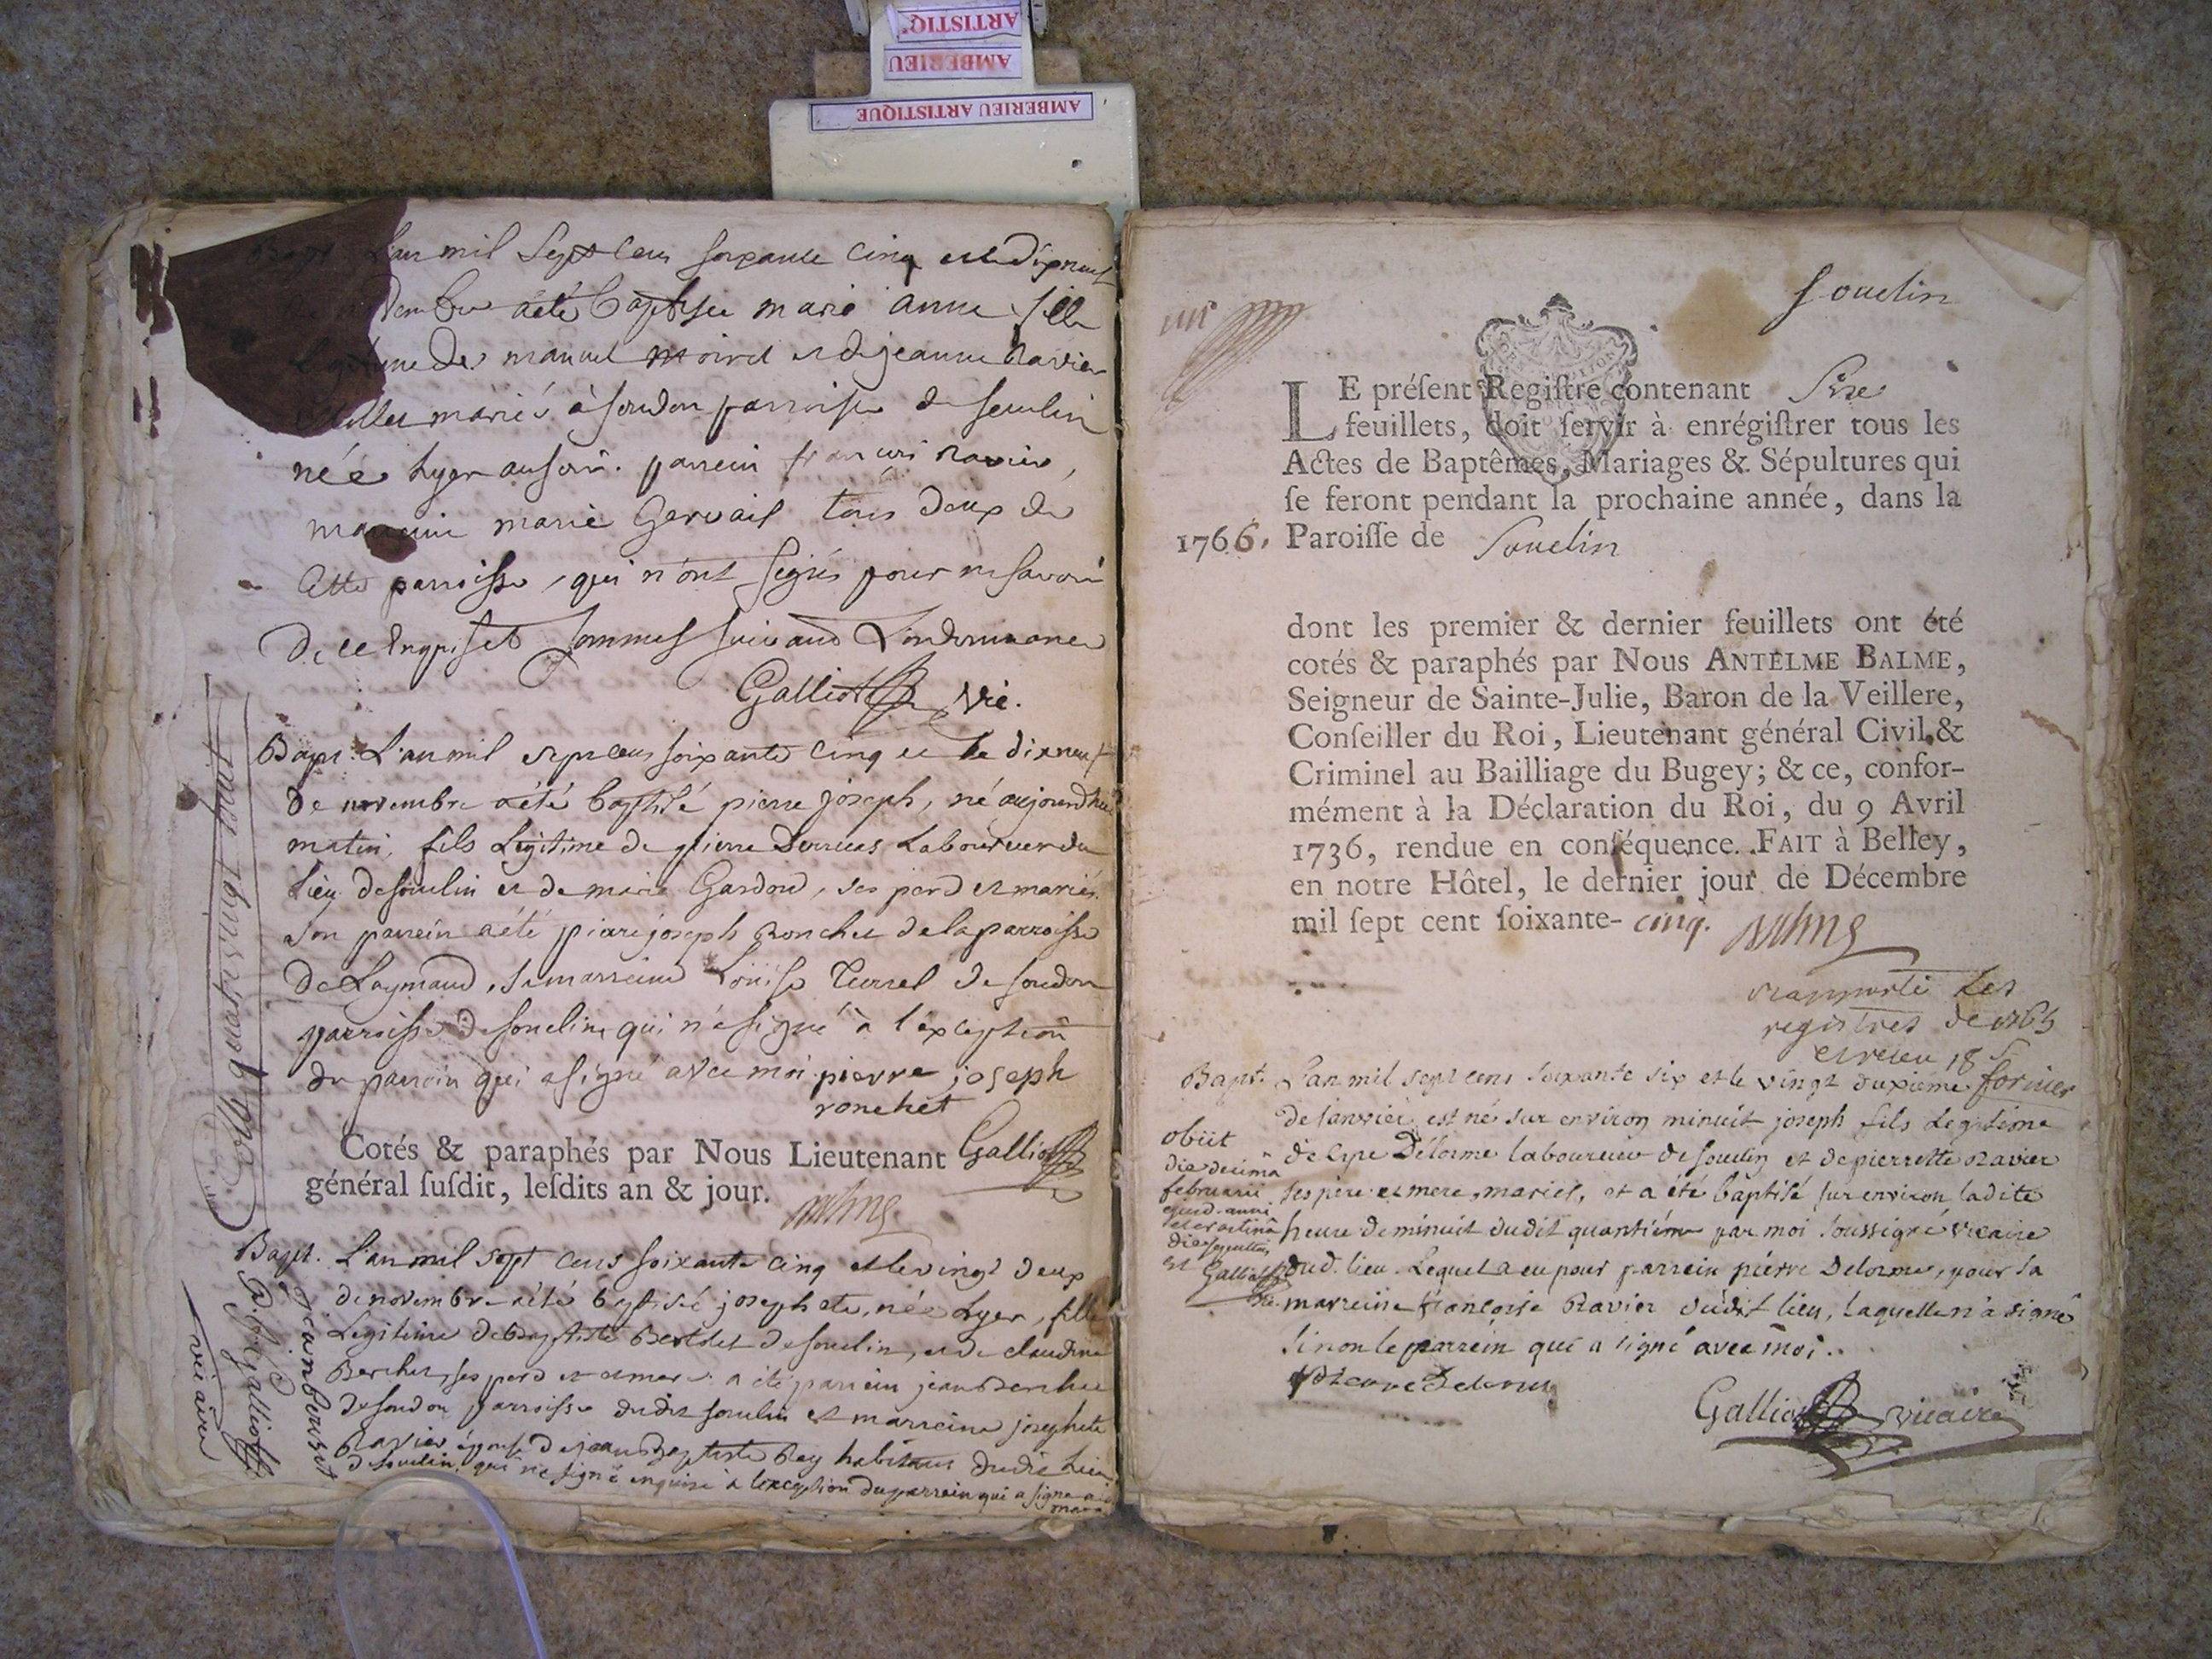 ARTISTIQ
AMBERIEU
AMBERIEU ARTISTIQUE
Bapt L'an mil Sept Cens soixante Cinq et le dixneuf
novembre a été baptisée marie anne fille
legitime de manuel moiret et de jeanne Ravier
mariés à soudon parroisse de soudin
née hyer au soir. parrein françois Ravier,
marreine marie Gervais tous deux de
Cette parroisse, qui n'ont signés pour ne savoir
De ce Enquis et sommés suivant L'ordonnance
Galliot vic.
Bapt. L'an mil sept cens soixante cinq et le dixneuf
de novembre a été baptisé pierre joseph, né aujourd'hui
matin, fils Legitime de pierre Laboureur du
Lieu de soudin et de marie ses pere et mariés
son parrein a été pierre joseph Ronchet de la parroisse
De Laymand, sa marreine Louise de soudon
parroisse de soudin qui n'a signé à l'exception
du parrein qui a signé avec moi. pierre joseph
ronchet
Galliot
Cotés & paraphés par Nous Lieutenant
général susdit, lesdits an & jour.
Bapt. L'an mil sept cens soixante cinq et le vingt deux
de novembre a été baptisée josephete, née hyer, fille
Legitime de Baptiste de soudin, et de claudine
Berchet, ses pere et mere. a été parrein jean Berchet
de soudon parroisse dudit soudin et marreine josephete
Ravier épouse de jean Baptiste Rey habitant dudit lieu
de soudin, qui n'a signé enquise à l'exception du parrein qui a signé
Galliot
vicaire
soudin
LE présent Registre contenant Size
feuillets, doit servir à enrégistrer tous les
Actes de Baptêmes, Mariages & Sépultures qui
se feront pendant la prochaine année, dans la
1766. Paroisse de soudin
dont les premier & dernier feuillets ont été
cotés & paraphés par Nous ANTELME BALME,
Seigneur de Sainte-Julie, Baron de la Veillere,
Conseiller du Roi, Lieutenant général Civil &
Criminel au Bailliage du Bugey; & ce, confor-
mément à la Déclaration du Roi, du 9 Avril
1736, rendue en conséquence. FAIT à Belley,
en notre Hôtel, le dernier jour de Décembre
mil sept cent soixante- cinq.
rapporté les
registres de 1765
18
Bapt. L'an mil sept cens soixante six et le vingt duxiéme
de janvier est né sur environ minuit joseph fils Legitime
de Delorme laboureur de soudin et de pierrette Ravier
ses pere et mere, mariés, et a été baptisé sur environ ladite
heure de minuit dudit quantiéme par moi soussigné vicaire
dud. lieu. Lequel a eu pour parrein pierre Delorme, pour sa
marreine françoise Ravier dudit lieu, laquelle n'a signé
sinon le parrein qui a signé avec moi.
obiit
die decimâ
februarii
ejusd. anni
et crastinâ
die sepultus
est
Galliot
Pierre Delorme
Galliot vicaire